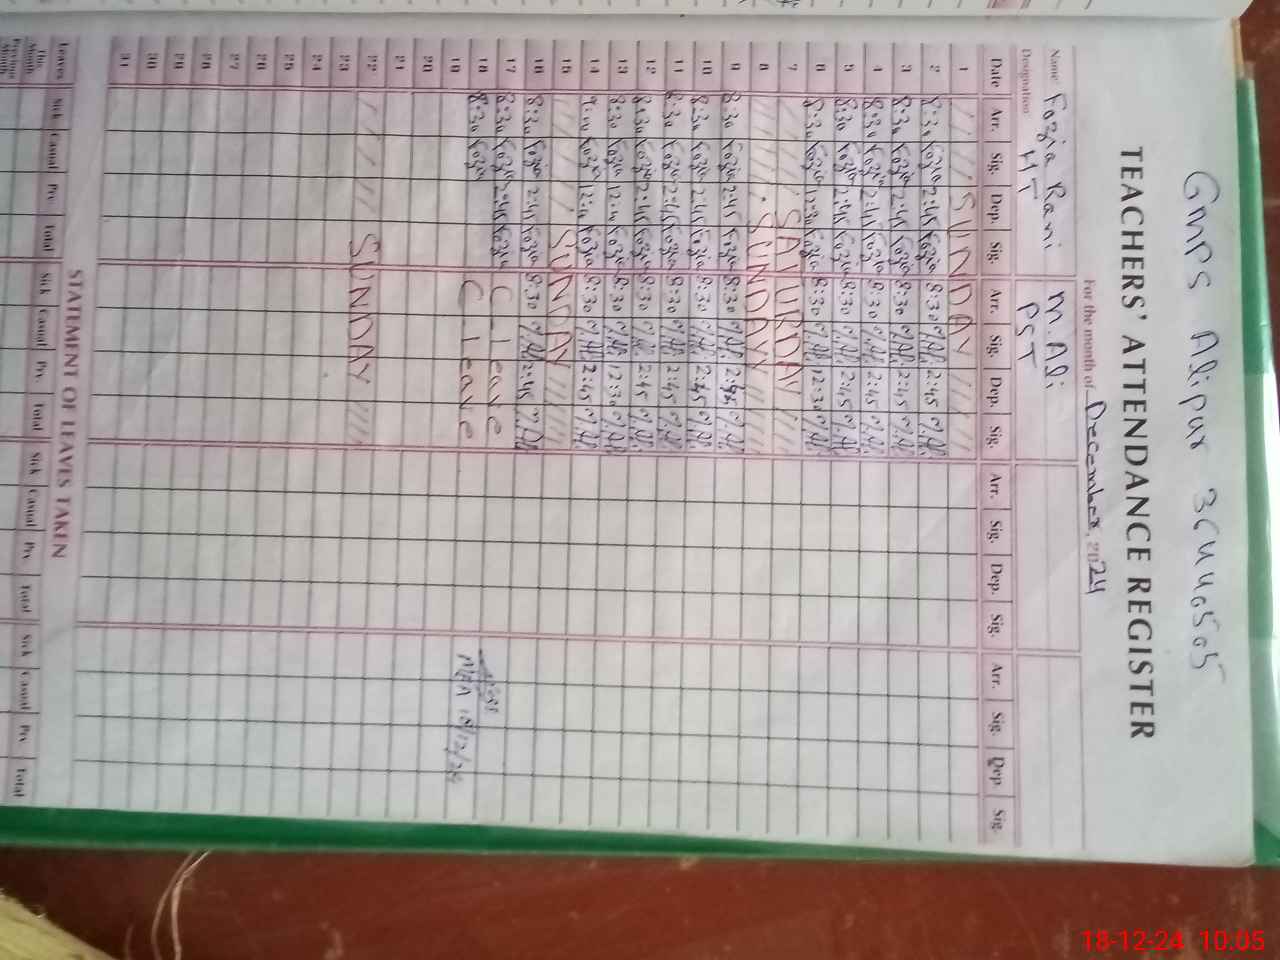 GMPS Alipur
TEACHERS' ATTENDANCE REGISTER
For the month of December, 2024
Name Fozia Rani M. Ali
Designation HT PST
Date Arr. Sig. Dep. Sig. Arr. Sig. Dep. Sig. Arr. Sig. Dep. Sig. Arr. Sig. Dep. Sig.
1 SUNDAY
2 8:30 Fozia 2:45 Fozia 8:30 M.Ali 2:45 M.Ali
3 8:30 Fozia 2:45 Fozia 8:30 M.Ali 2:45 M.Ali
4 8:30 Fozia 2:45 Fozia 8:30 M.Ali 2:45 M.Ali
5 8:30 Fozia 2:45 Fozia 8:30 M.Ali 2:45 M.Ali
6 8:30 Fozia 12:30 Fozia 8:30 M.Ali 12:30 M.Ali
7 SATURDAY
8 SUNDAY
9 8:30 Fozia 2:45 Fozia 8:30 M.Ali 2:45 M.Ali
10 8:30 Fozia 2:45 Fozia 8:30 M.Ali 2:45 M.Ali
11 8:30 Fozia 2:45 Fozia 8:30 M.Ali 2:45 M.Ali
12 8:30 Fozia 2:45 Fozia 8:30 M.Ali 2:45 M.Ali
13 8:30 Fozia Fozia 8:30 M.Ali 12:30 M.Ali
14 Fozia Fozia 8:30 M.Ali 2:45 M.Ali
15 SUNDAY
16 8:30 Fozia 2:45 Fozia 8:30 M.Ali 2:45 M.Ali
17 8:30 Fozia 2:45 Fozia C Leave
18 8:30 Fozia C Leave
19 MEA 18/12/24
20
21
22 SUNDAY
23
24
25
26
27
28
29
30
31
STATEMENT OF LEAVES TAKEN
Leaves Sick Casual Prv. Total Sick Casual Prv. Total Sick Casual Prv. Total Sick Casual Prv. Total
This Month
Previous Month
18-12-24 10:05